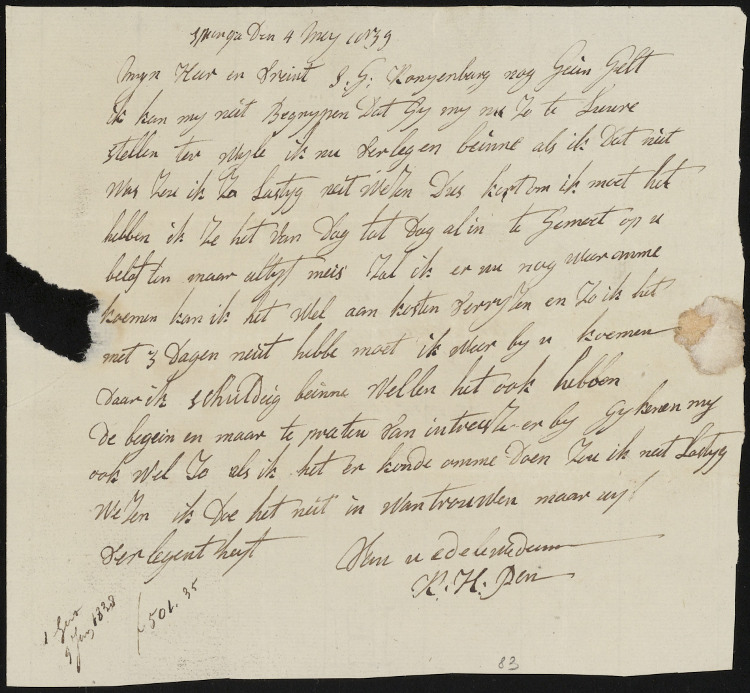 Spanga Den 4 Mey 1839
Myn Heer en Vreint S. G. Konyenburg nog Geen Gelt
ik kan my niet Begrypen Dat Gy my nu Zo te Leure
stellen ter wyle ik nu verlegen beinne als ik Dat niet
Was Zou ik Zo Lastyg niet Wezen Dus kort om ik moet het
hebben ik Ze het van Dag tot Dag al in te Gemoet op u
beloften maar altyt meis Zal ik er nu nog weer omme
koemen kan ik het Wel aan kosten verryzen en Zo ik het
met 3 Dagen neit hebbe moet ik weer by u koemen
Daar ik schuldeig beinne Wellen het ook hebben
De begein en maar te praten van intreste er by Gy kenen my
ook Wel Zo als ik het er konde omme Doen Zou ik neit Lastyg
Wezen ik Doe het neit in Wantrouwen maar uyt
verlegentheyt Van u edele
K. H. Pen
1 Gen
9 Jan 1838
501.35
83